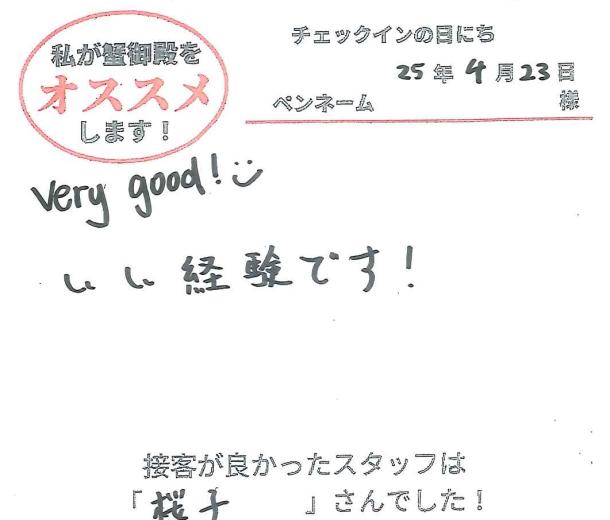 私が蟹御殿を
オススメ
します！
チェックインの日にち
25年4月23日
ペンネーム 様
very good! :)
いい経験です！
接客が良かったスタッフは
「桜子 」さんでした！